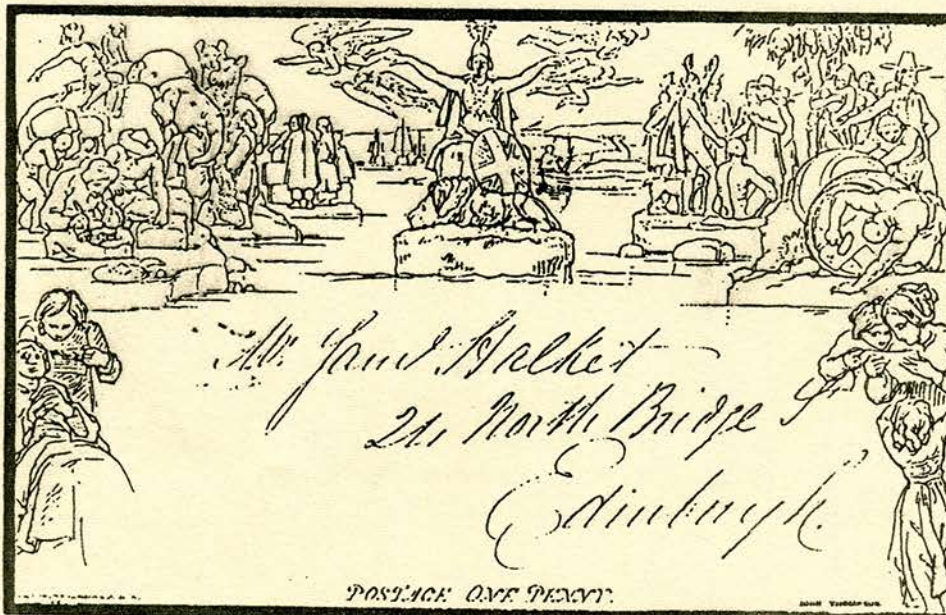 Mr. James Halket
24 North Bridge St
Edinburgh.
POSTAGE ONE PENNY.
JOHN THOMPSON